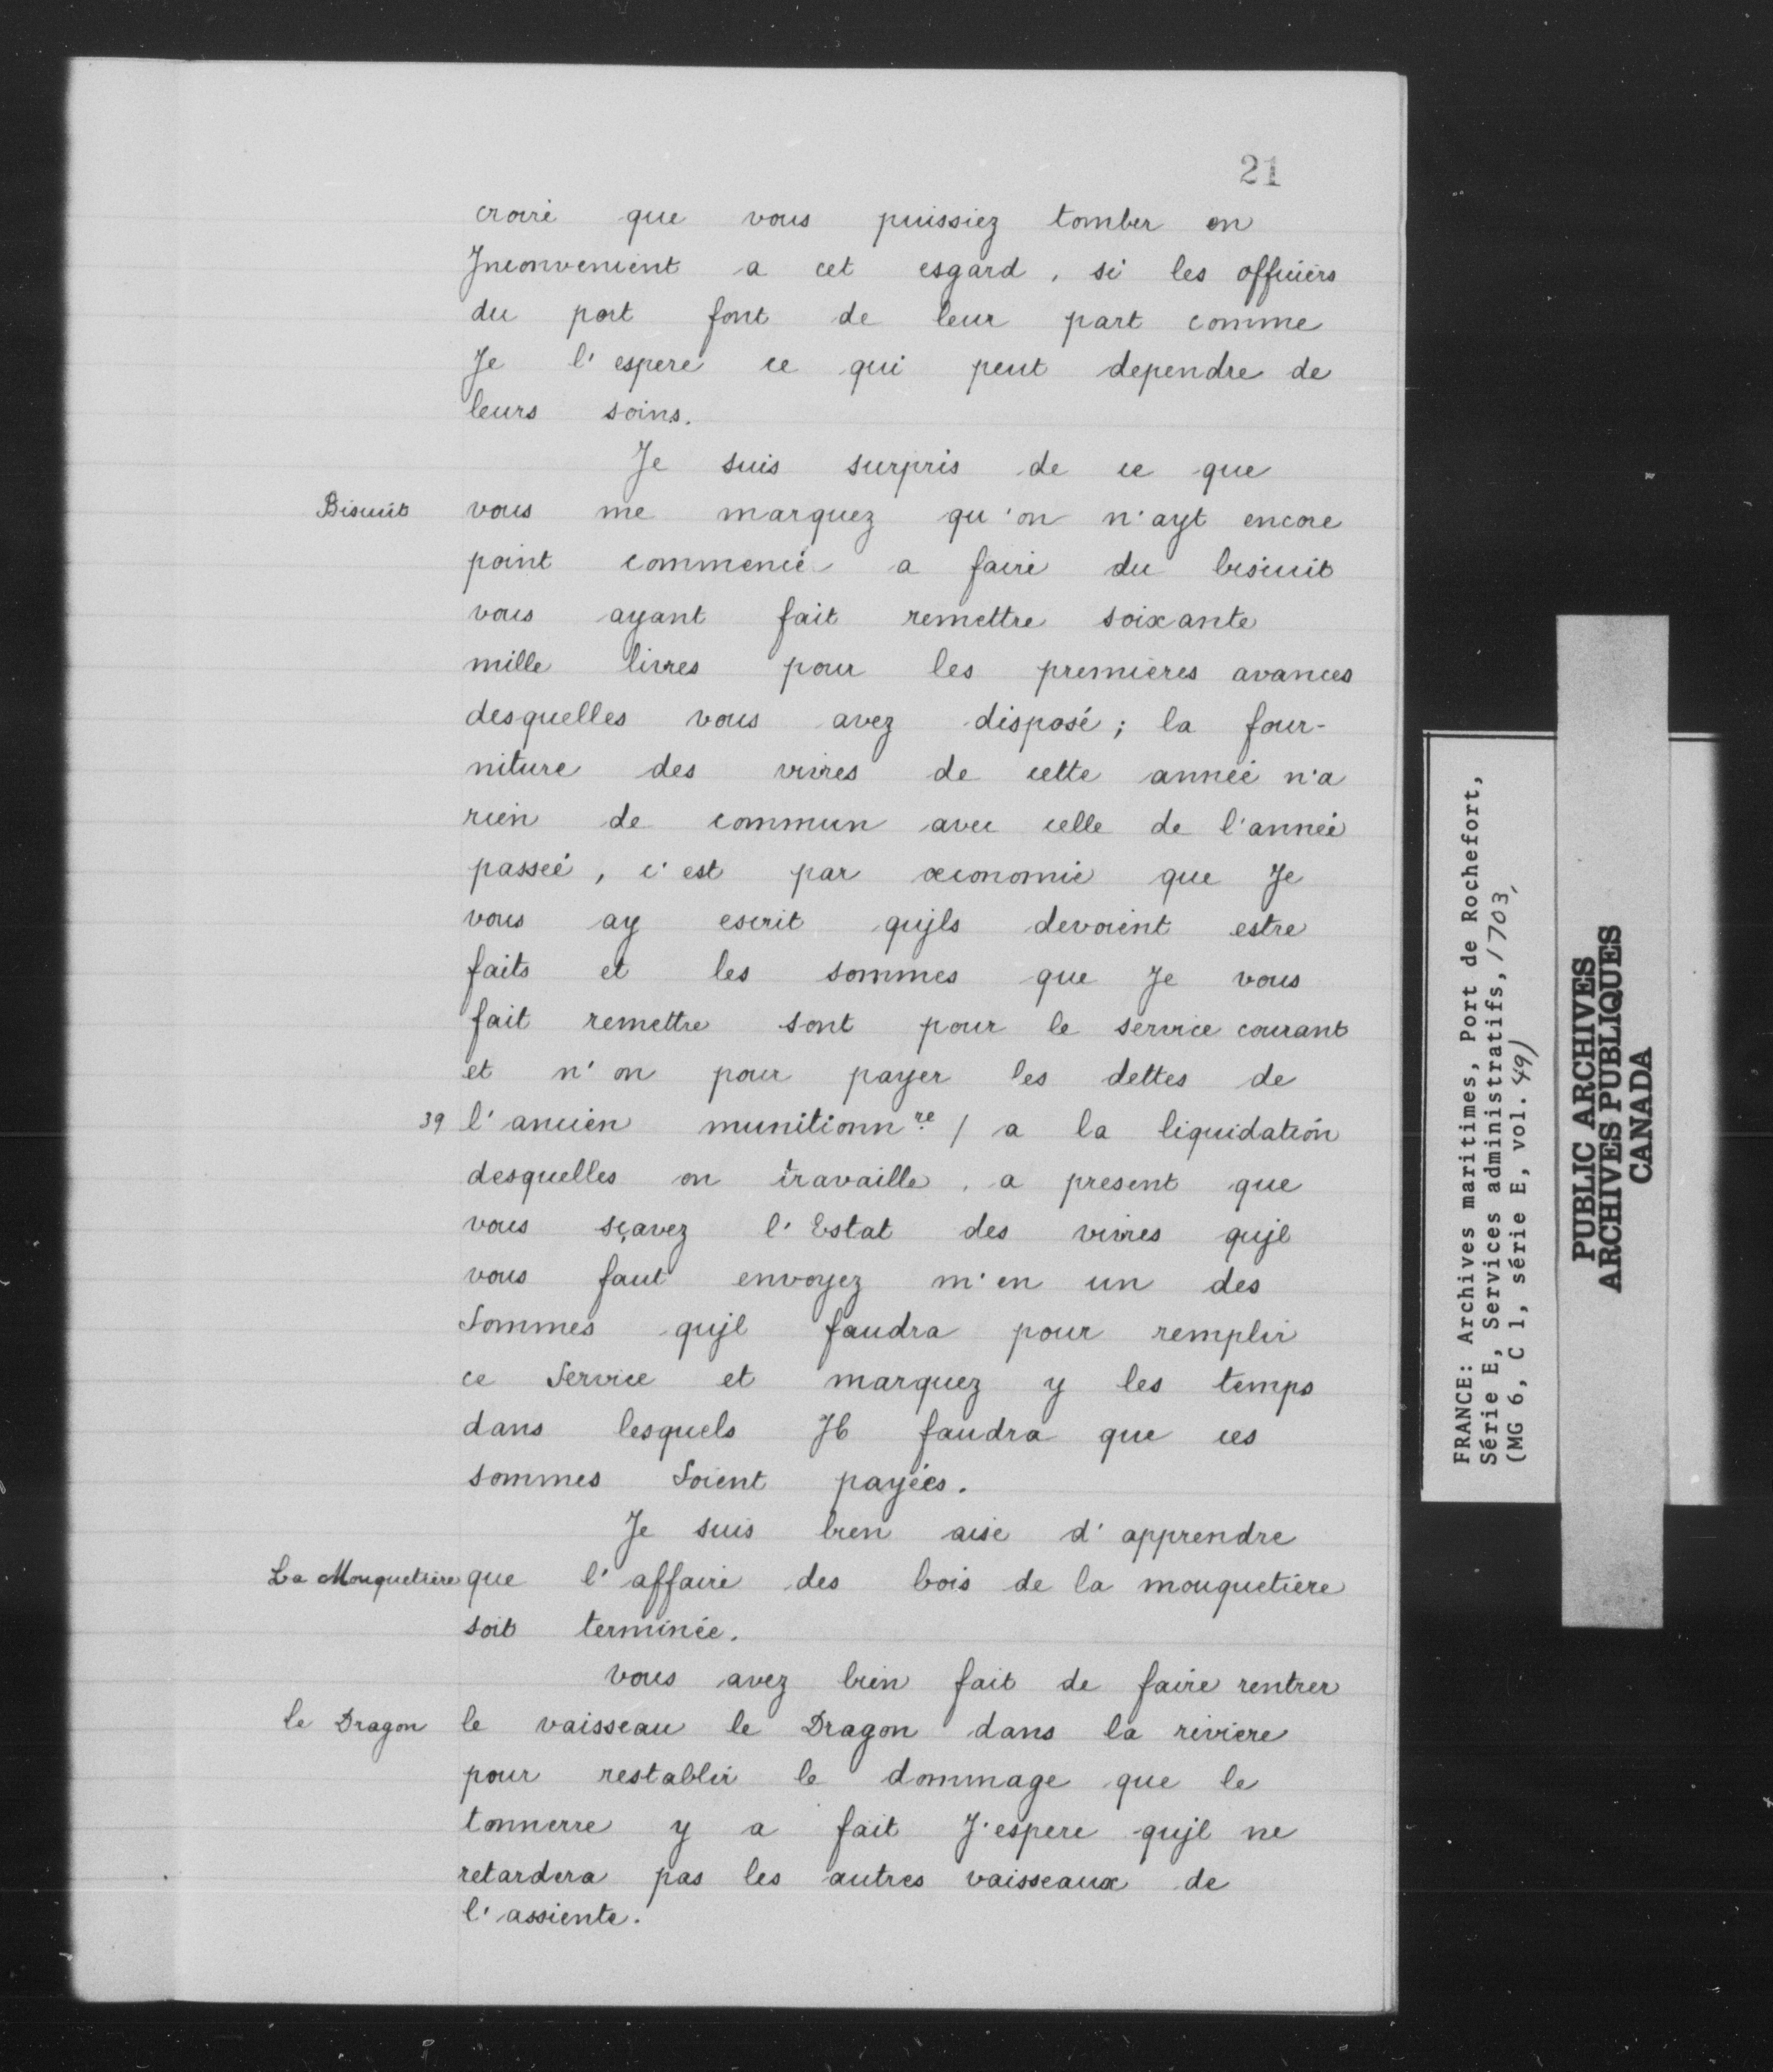 21
croire que vous puissiez tomber en
Jnconvenient a cet esgard, si les officiers
du port font de leur part comme
Je l'espere ce qui peut dependre de
leurs soins.
Je suis surpris de ce que
Biscuit vous me marquez qu'on n'ayt encore
point commencé a faire du biscuit
vous ayant fait remettre soixante
mille livres pour les premieres avances
desquelles vous avez disposé; la four-
niture des vivres de cette année n'a
rien de commun avec celle de l'année
passeé, c'est par œconomie que Je
vous ay escrit qujls devoient estre
faits et les sommes que Je vous
fait remettre sont pour le service courant
et n'on pour payer les dettes de
39 l'ancien munitionnre / a la liquidation
desquelles on travaille, a present que
vous sçavez l'Estat des vivres qujl
vous faut envoyez m'en un des
Sommes qujl faudra pour remplir
ce Service et marquez y les temps
dans lesquels Jl faudra que ces
sommes Soient payées.
Je suis bien aise d'apprendre
La Mouquetiere que l'affaire des bois de la mouquetiere
soit terminée.
vous avez bien fait de faire rentrer
le Dragon le vaisseau le Dragon dans la riviere
pour restablir le dommage que le
tonnerre y a fait J'espere qujl ne
retardera pas les autres vaisseaux de
l'assiente.
FRANCE: Archives maritimes, Port de Rochefort,
Série E, Services administratifs, 1703,
(MG 6, C 1, série E, vol. 49)
PUBLIC ARCHIVES
ARCHIVES PUBLIQUES
CANADA